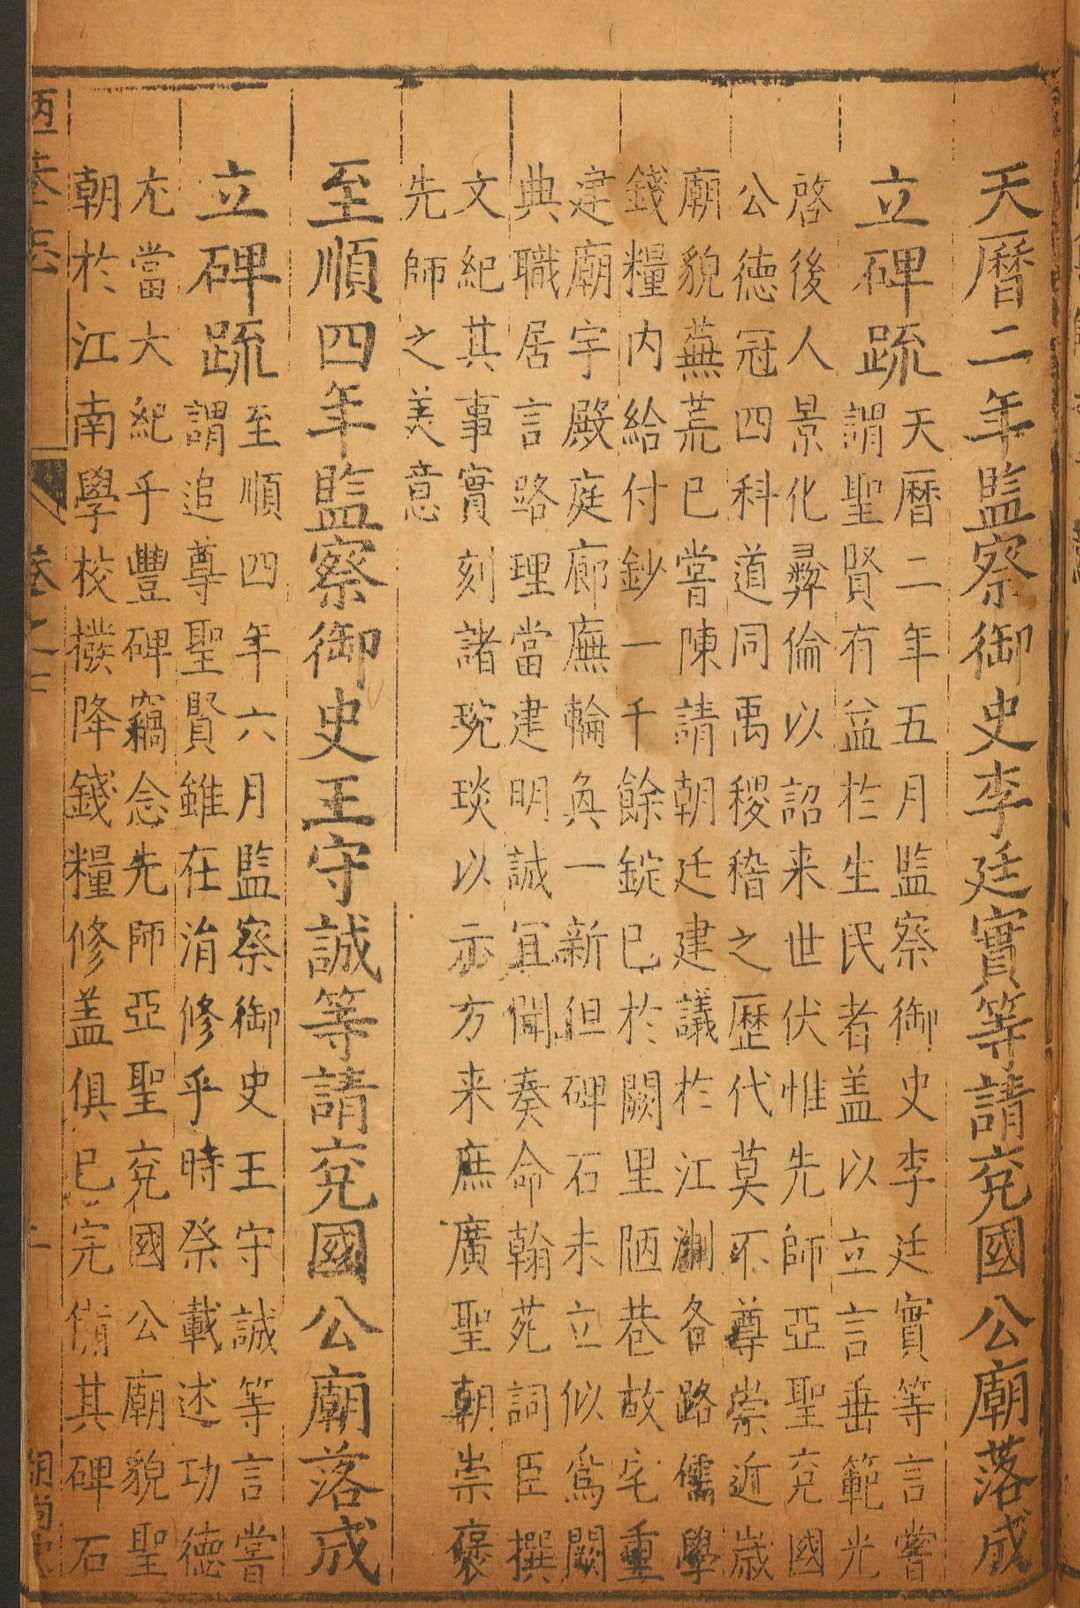 天曆二年監察御史李廷實等請兖國公廟落成
立碑疏
天曆二年五月監察御史李廷實等言嘗
謂聖賢有益扵生民者盖以立言垂範光
啓後人景化彛倫以詔来世伏惟先師亞聖兖國
公德冠四科道同禹稷稽之歷代莫不尊崇近歲
廟貌蕪荒已嘗陳請朝廷建議扵江淛各路儒學
錢糧内給付鈔一千餘錠已扵闕里陋巷故宅重
建廟宇殿庭廊廡輪奐一新但碑石未立似爲闕
典職居言路理當建明誠冝聞奏命翰苑詞臣撰
文紀其事實刻諸琬琰以示方来庶廣聖朝崇褒
先師之美意
至順四年監察御史王守誠等請兖國公廟落成
立碑疏
至順四年六月監察御史王守誠等言嘗
謂追尊聖賢雖在㳙修乎時祭載述功德
尤當大紀乎豐碑竊念先師亞聖兖國公廟貌聖
朝扵江南學校撥降錢糧修盖俱已完備其碑石
陋巷志
卷之